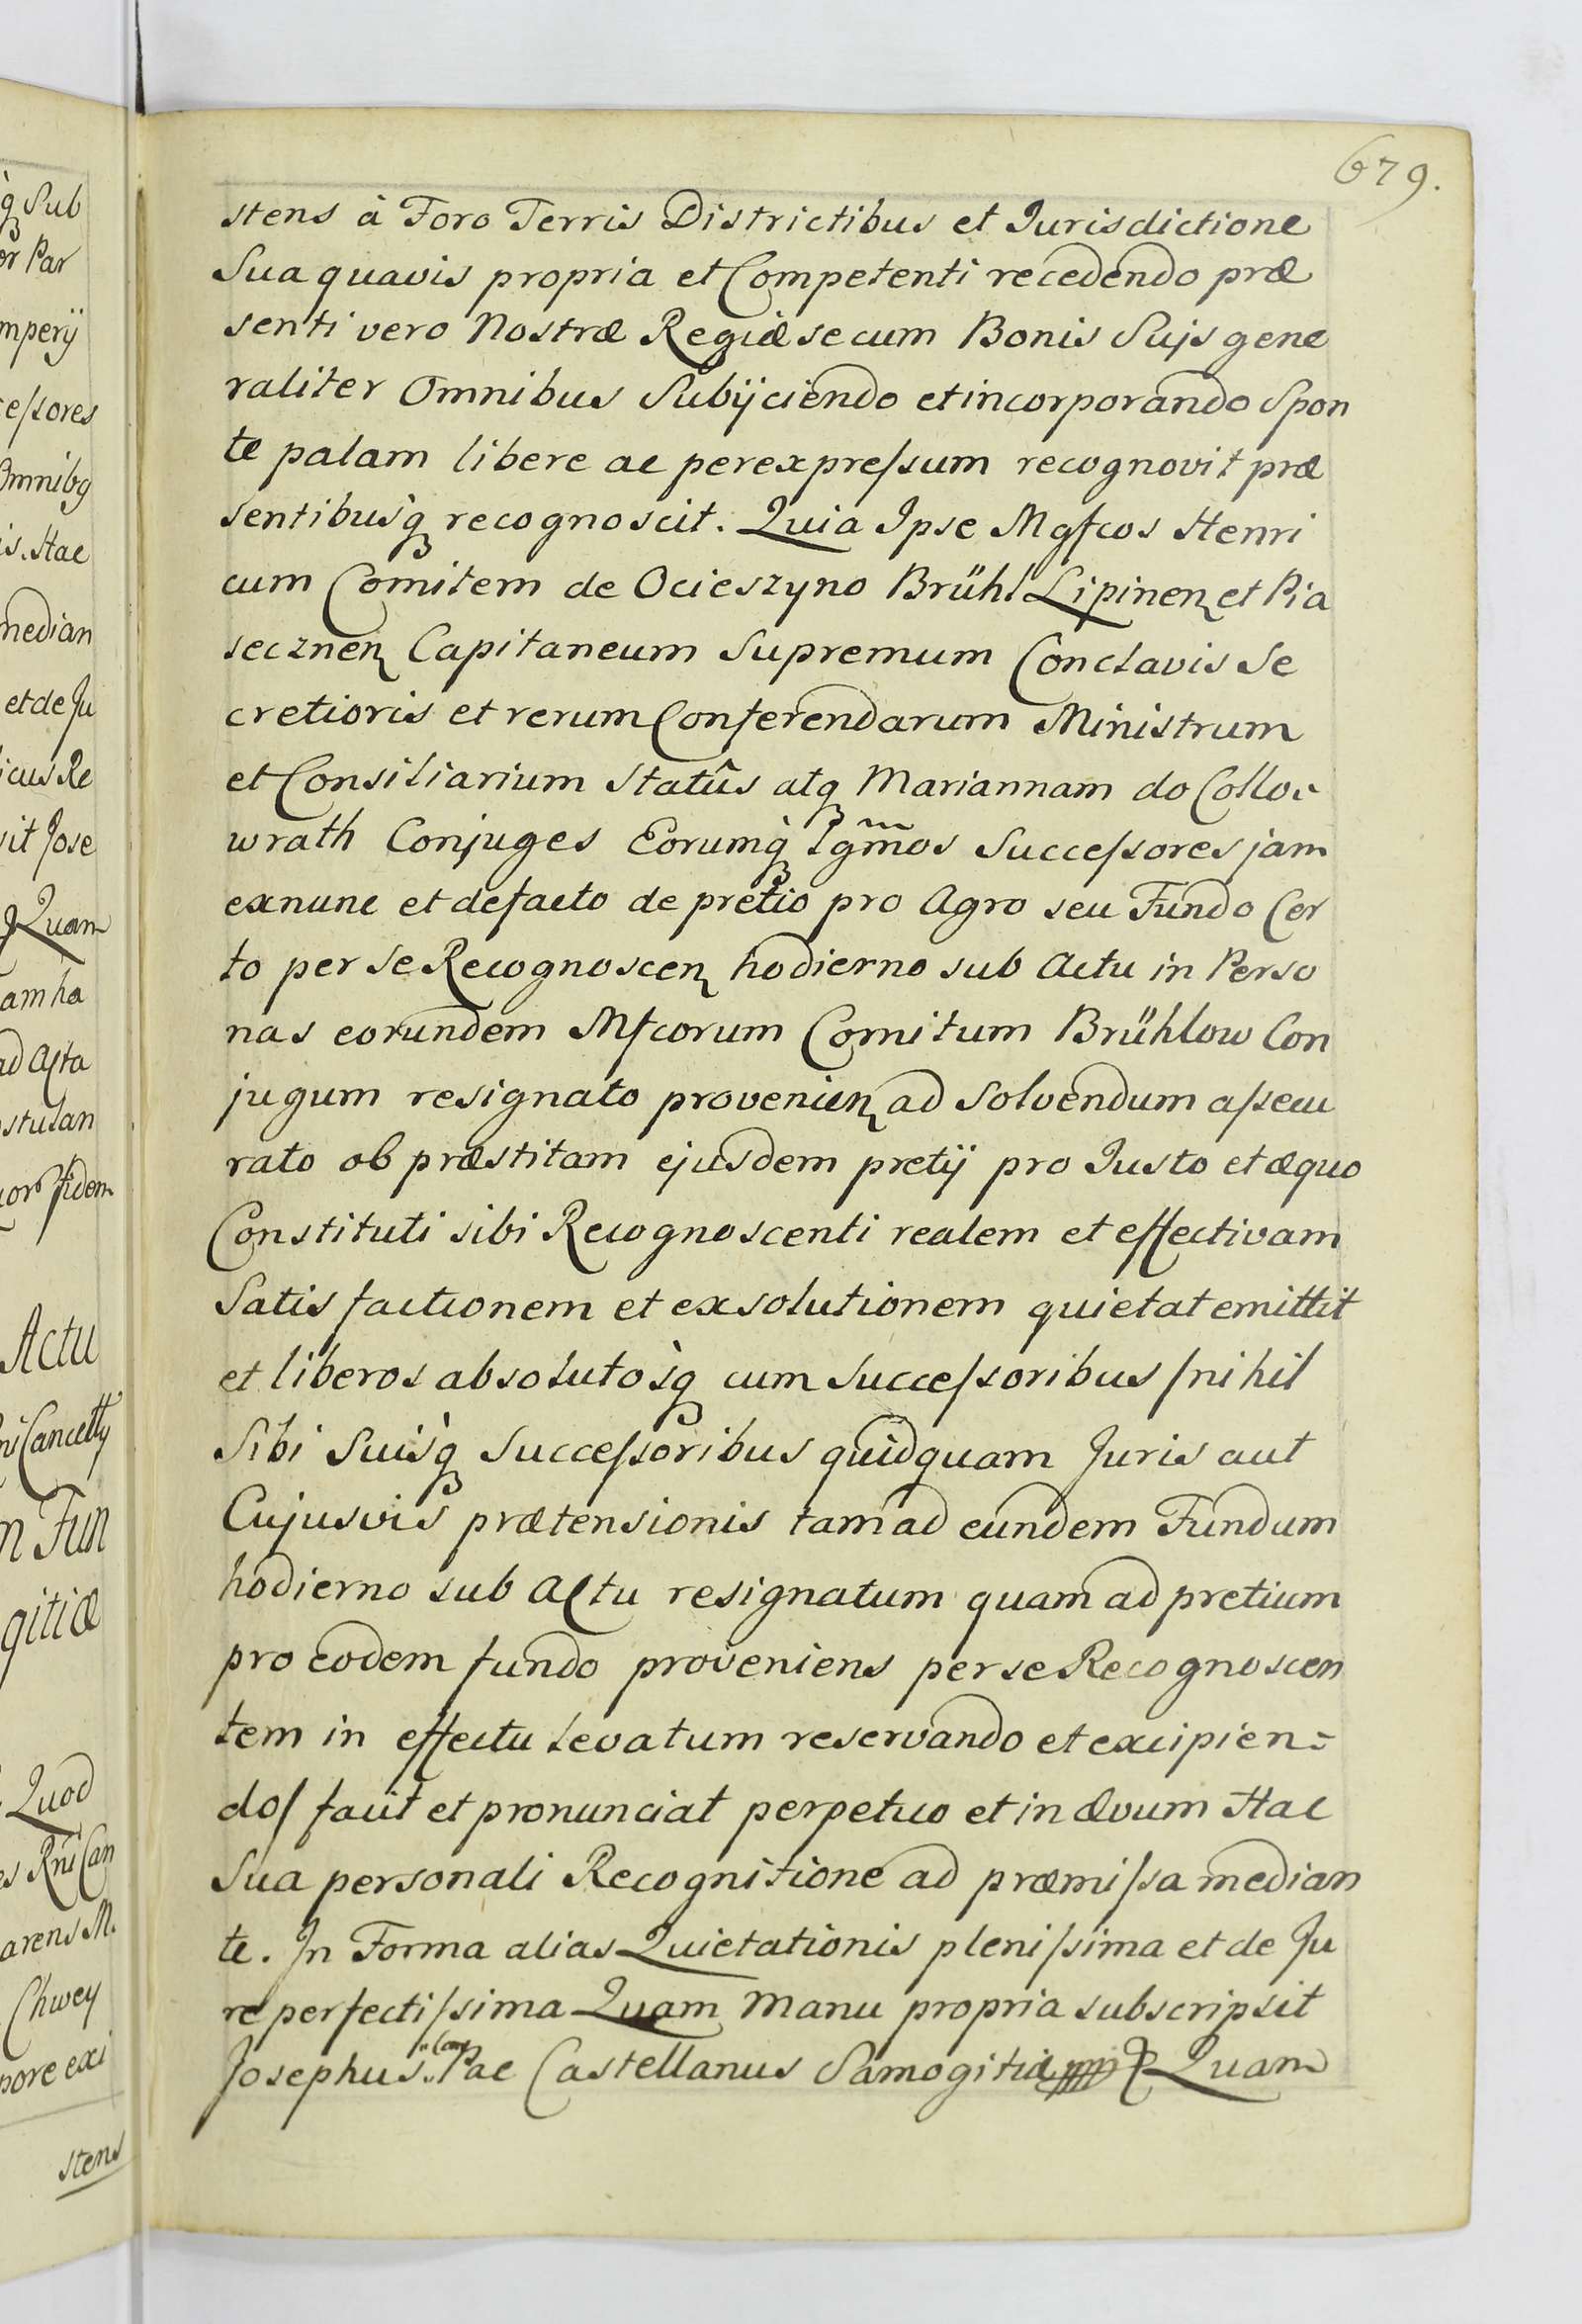 679.
stens à Foro Terris Districtibus et Jurisdictione
Sua quavis propria et Competenti recedendo præ
senti vero Nostræ Regiæ se cum Bonis Suis gene
raliter Omnibus Subijciendo et incorporando Spon
te palam libere ac per expressum recognovit præ
sentibusq̀ꝫ recognoscit. Quia Ipse Mgfcos Henri
cum Comitem de Ocieszyno Brühl Lipinen et Pia
secznen Capitaneum Supremum Conclavis Se
cretioris et rerum Conferendarum Ministrum
et Consiliarium Statûs atqꝫ Mariannam do Collo-
wrath Conjuges Eorumq̀ꝫ Lgmos Successores jam
exnunc et defacto de pretio pro Agro seu Fundo Cer
to per se Recognoscen hodierno sub Actu in Perso
nas eorundem Mfcorum Comitum Brühlow Con
jugum resignato provenien ad Solvendum assecu
rato ob præstitam ejusdem pretij pro Justo et æquo
Constituti sibi Recognoscenti realem et effectivam
Satisfactionem et exsolutionem quietat emittit
et liberos absolutosq̀ꝫ cum Successoribus /nihil
Sibi Suisq̀ꝫ Successoribus quidquam Juris aut
Cujusvis prætensionis tam ad eundem Fundum
hodierno sub Actu resignatum quam ad pretium
pro eodem fundo proveniens per se Recognoscen
tem in effectu levatum reservando et excipien=
do/ facit et pronunciat perpetuo et in ævum Hac
Sua personali Recognitione ad præmissa median
te. In Forma alias Quietationis plenissima et de Ju
re perfectissima Quam Manu propria subscripsit
Josephus Pac Castellanus Samogitiæ Quam
q̀ꝫ Sub
Par
mperij
cessores
Omnibꝫ
is. Hac
median
et de Ju
icus Re
vit Jose
Quam
am ha
ad Acta
ostulan
fidem
Actu
n Fun
gitiæ
Quod
es Rni Can
arens M.
Chwey
pore exi
stens